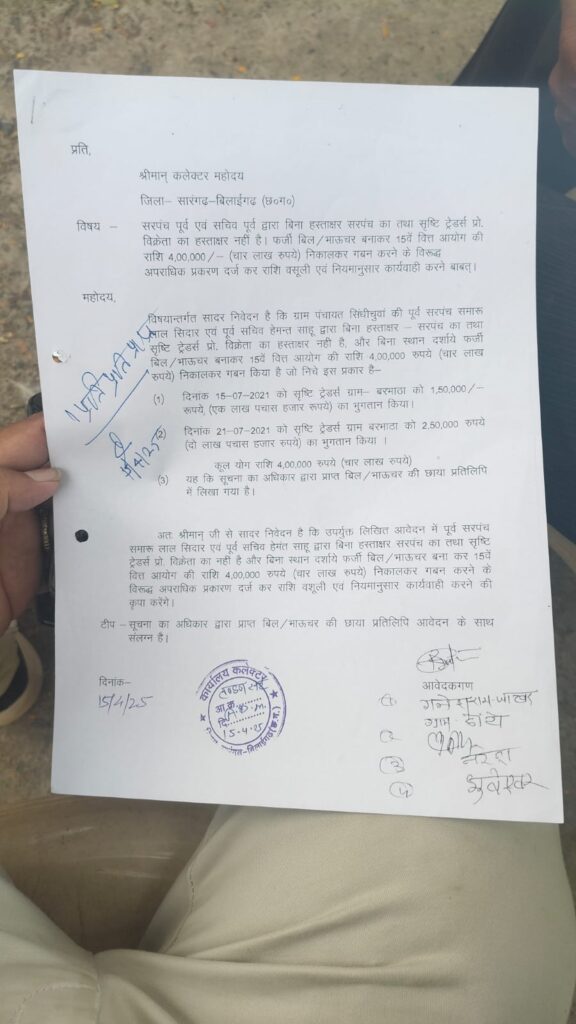 प्रति,
श्रीमान् कलेक्टर महोदय
जिला– सारंगढ–बिलाईगढ (छ०ग०)
विषय – सरपंच पूर्व एवं सचिव पूर्व द्वारा बिना हस्ताक्षर सरपंच का तथा सृष्टि ट्रेडर्स प्रो.
विक्रेता का हस्ताक्षर नहीं है। फर्जी बिल/भाऊचर बनाकर 15वें वित्त आयोग की
राशि 4,00,000/– (चार लाख रुपये) निकालकर गबन करने के विरूद्ध
अपराधिक प्रकरण दर्ज कर राशि वसूली एवं नियमानुसार कार्यवाही करने बाबत्।
महोदय,
विषयान्तर्गत सादर निवेदन है कि ग्राम पंचायत सिंघीचुवां की पूर्व सरपंच समारू
लाल सिदार एवं पूर्व सचिव हेमन्त साहू द्वारा बिना हस्ताक्षर – सरपंच का तथा
सृष्टि ट्रेडर्स प्रो. विक्रेता का हस्ताक्षर नही है, और बिना स्थान दर्शाये फर्जी
बिल/भाऊचर बनाकर 15वें वित्त आयोग की राशि 4,00,000 रुपये (चार लाख
रुपये) निकालकर गबन किया है जो निचे इस प्रकार है–
(1) दिनांक 15-07-2021 को सृष्टि ट्रेडर्स ग्राम– बरमाठा को 1,50,000/–
रूपये (एक लाख पचास हजार रूपये) का भुगतान किया।
(2) दिनांक 21-07-2021 को सृष्टि ट्रेडर्स ग्राम बरमाठा को 2,50,000 रुपये
(दो लाख पचास हजार रुपये) का भुगतान किया ।
कूल योग राशि 4,00,000 रुपये (चार लाख रुपये)
(3) यह कि सूचना का अधिकार द्वारा प्राप्त बिल/भाऊचर की छाया प्रतिलिपि
में लिखा गया है।
अतः श्रीमान जी से सादर निवेदन है कि उपर्युक्त लिखित आवेदन में पूर्व सरपंच
समारू लाल सिदार एवं पूर्व सचिव हेमंत साहू द्वारा बिना हस्ताक्षर सरपंच का तथा सृष्टि
ट्रेडर्स प्रो. विक्रेता का नहीं है और बिना स्थान दर्शाये फर्जी बिल/भाऊचर बना कर 15वें
वित्त आयोग की राशि 4,00,000 रुपये (चार लाख रुपये) निकालकर गबन करने के
विरूद्ध अपराधिक प्रकारण दर्ज कर राशि वशूली एवं नियमानुसार कार्यवाही करने की
कृपा करेंगे।
टीप – सूचना का अधिकार द्वारा प्राप्त बिल/भाऊचर की छाया प्रतिलिपि आवेदन के साथ
संलग्न है।
दिनांक–
15/4/25
कार्यालय कलेक्टर
15-4-25
आवेदकगण
(1)
(2)
(3)
(4)